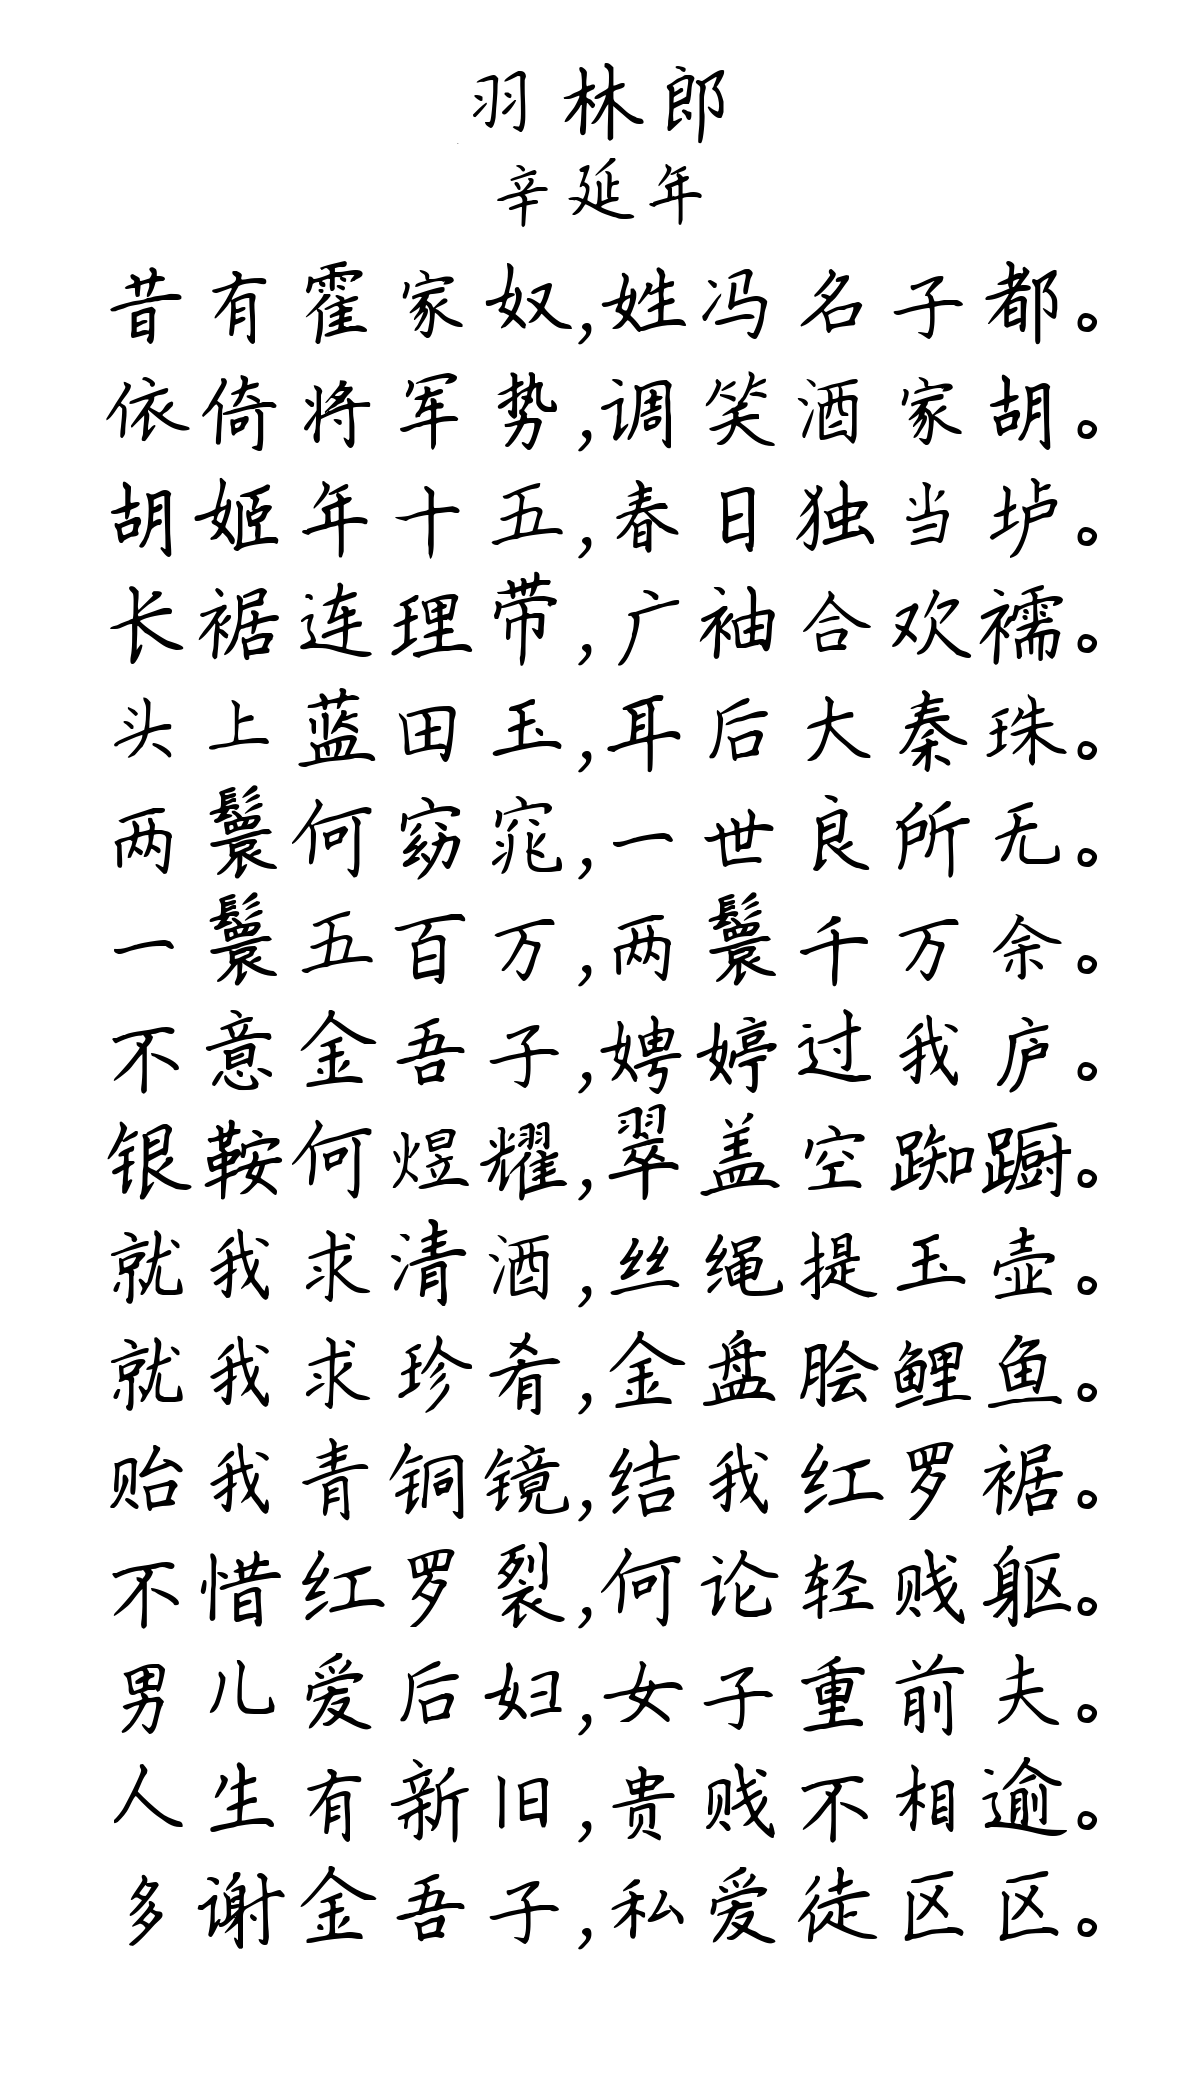 羽林郎
辛延年
昔有霍家奴,姓冯名子都。
依倚将军势,调笑酒家胡。
胡姬年十五,春日独当垆。
长裾连理带,广袖合欢襦。
头上蓝田玉,耳后大秦珠。
两鬟何窈窕,一世良所无。
一鬟五百万,两鬟千万余。
不意金吾子,娉婷过我庐。
银鞍何煜耀,翠盖空踟蹰。
就我求清酒,丝绳提玉壶。
就我求珍肴,金盘脍鲤鱼。
贻我青铜镜,结我红罗裾。
不惜红罗裂,何论轻贱躯。
男儿爱后妇,女子重前夫。
人生有新旧,贵贱不相逾。
多谢金吾子,私爱徒区区。